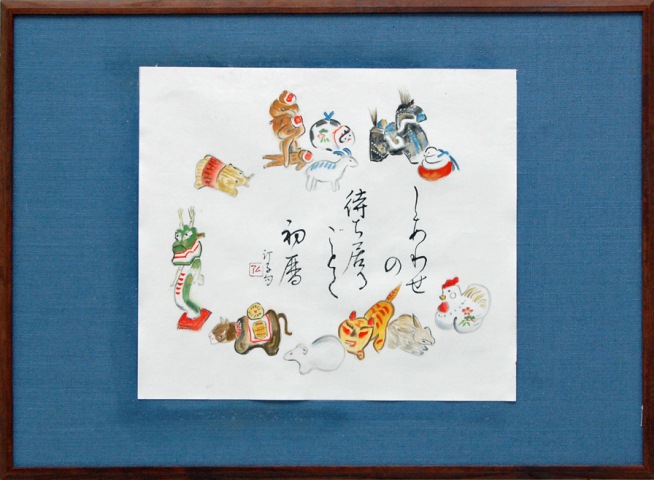 しあわせ
の
待ち居る
ごとく
初暦
汀子句